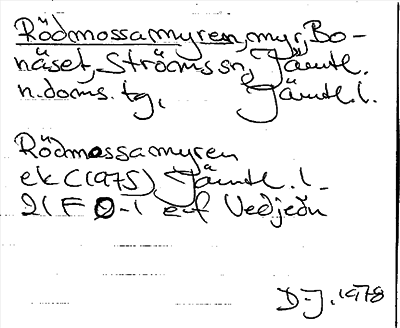 Rödmossamyren, myr, Bo-
näset, Ströms sn, Jämtl.
n. doms. tg, Jämtl. l.
Rödmossamyren
ek C (1975) Jämtl. l.
21 F 0-1 e-f
D-J. 1978